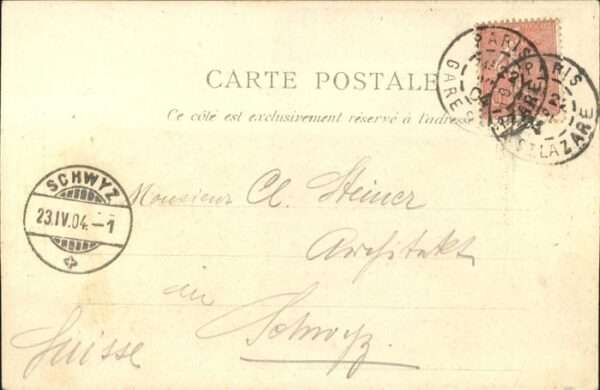 CARTE POSTALE
Ce côté est exclusivement réservé à l'adresse
PARIS
GARE St LAZARE
SCHWYZ
23.IV.04.-1
Monsieur Cl. Steiner
Architekt
in
Schwyz.
Suisse